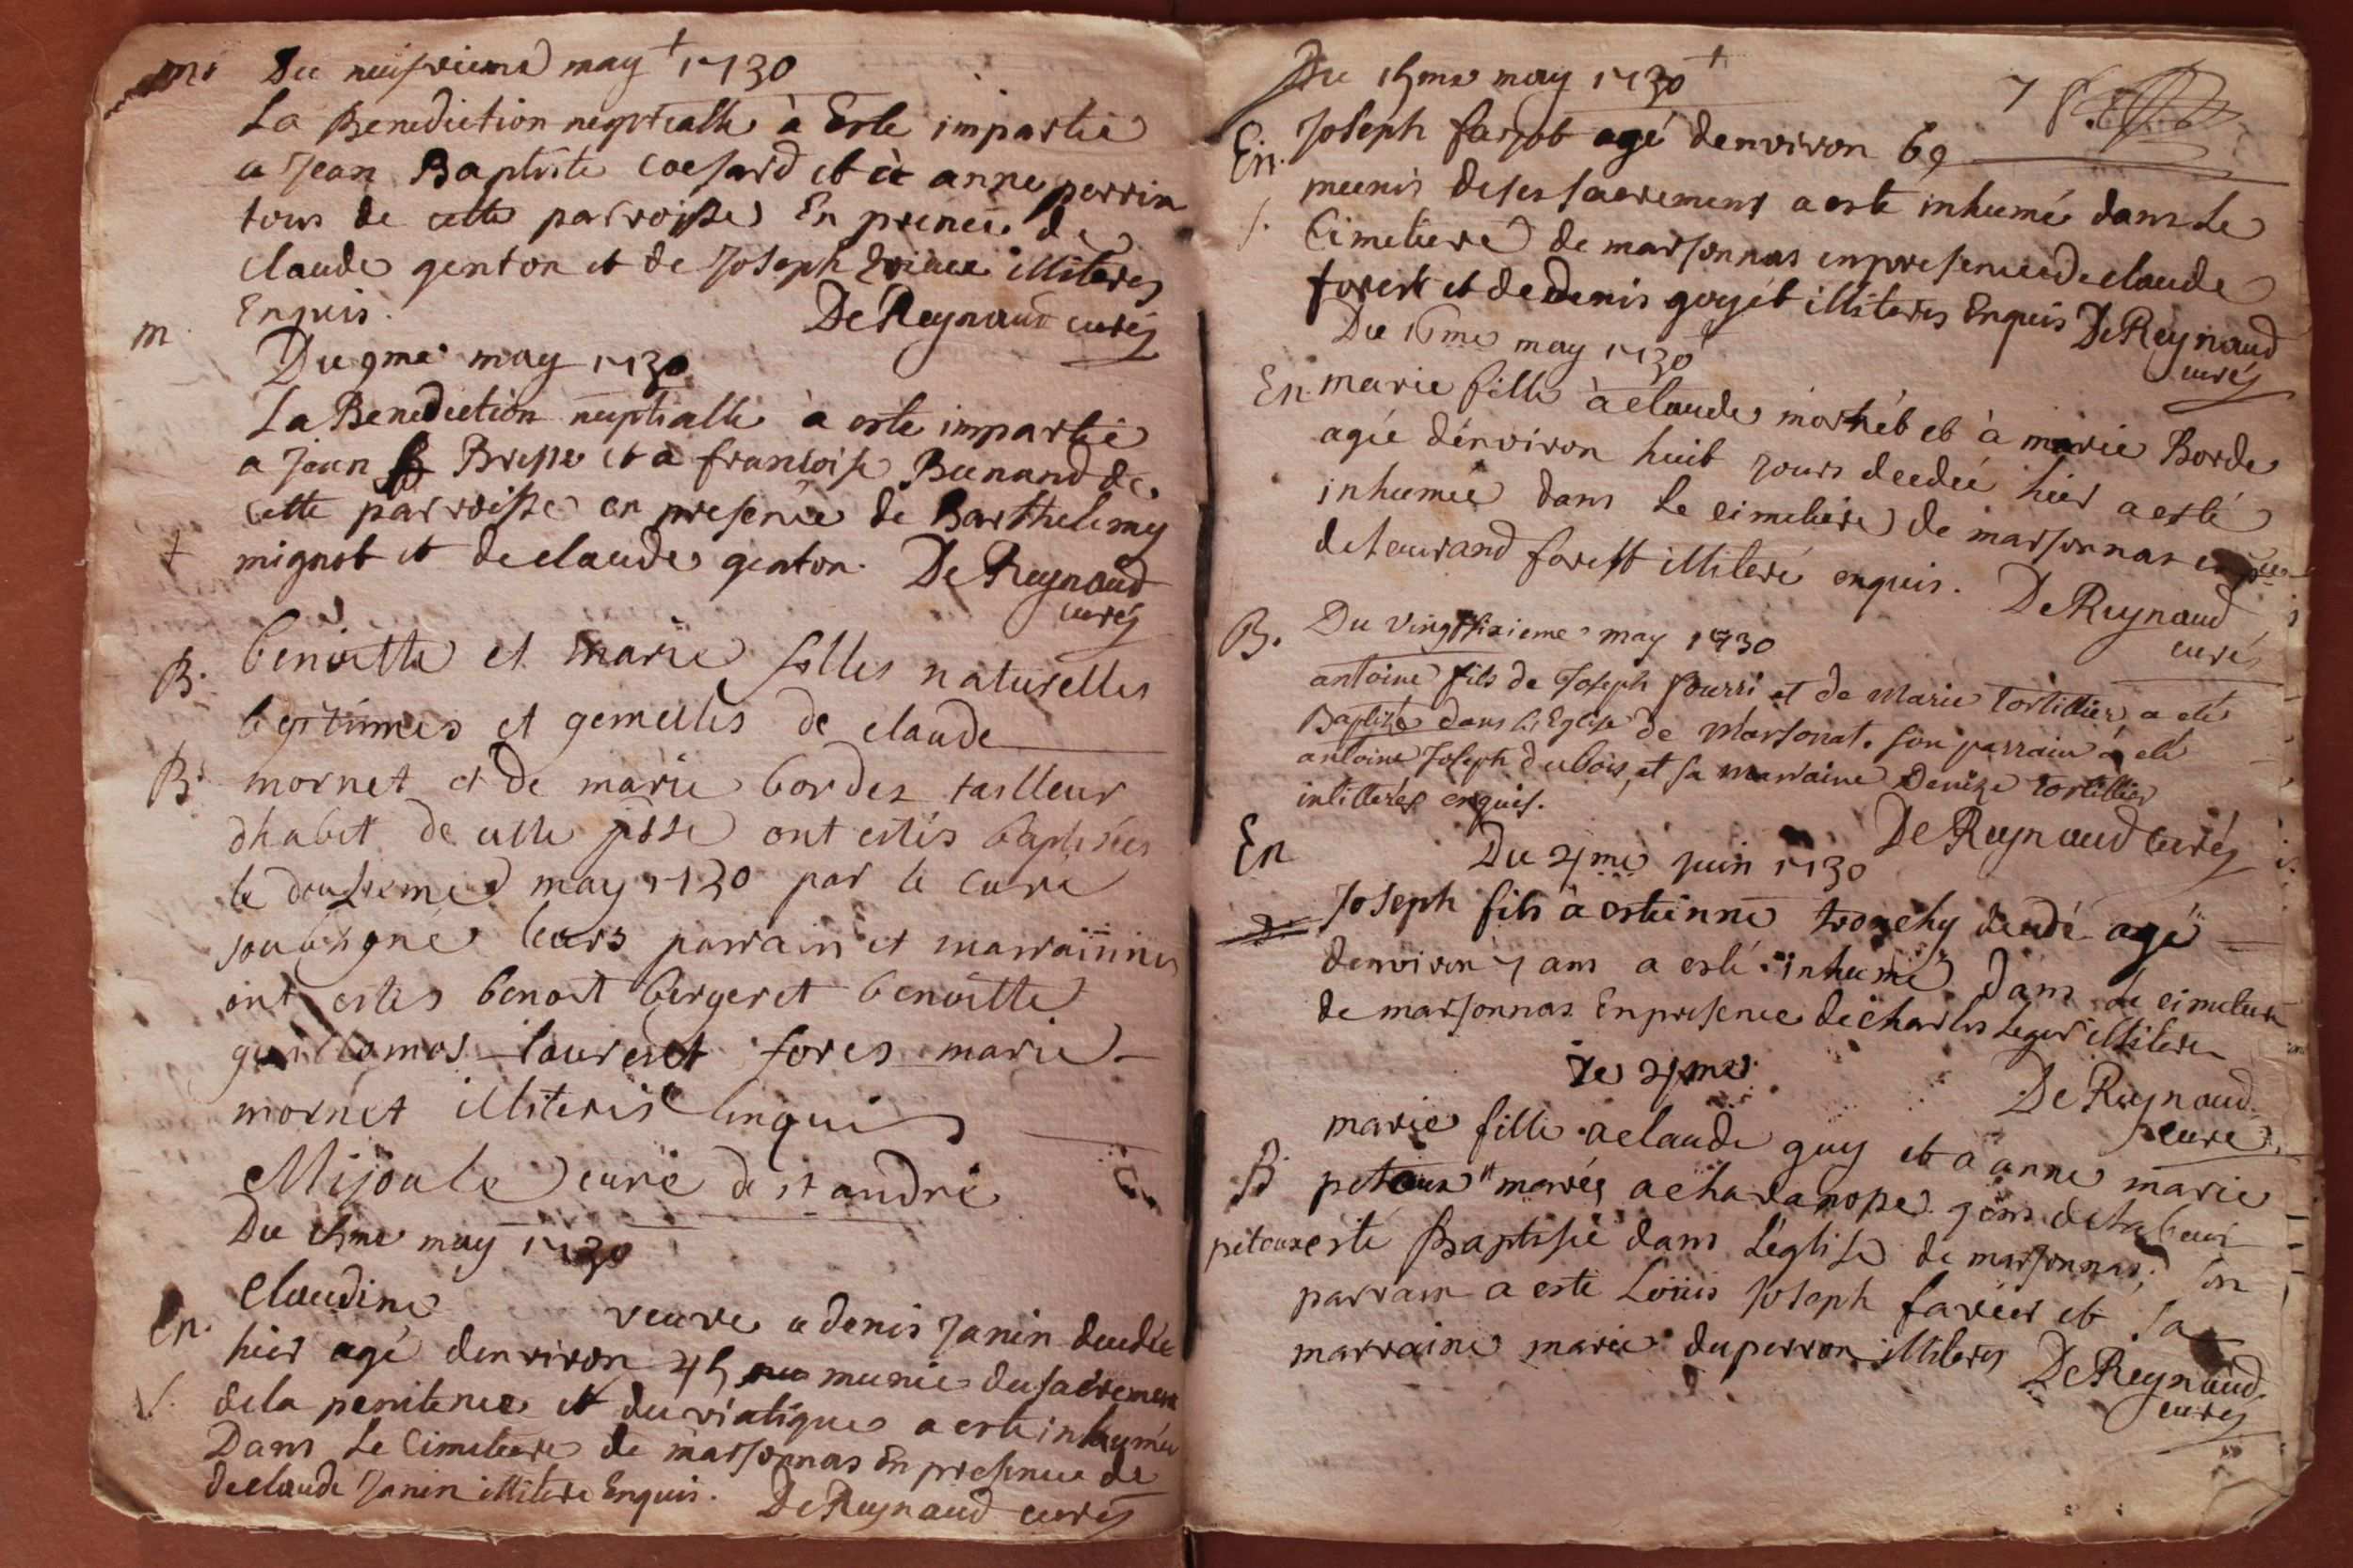 m. Du neufvieme may 1730
La Benediction neptialle à Este impartie
a Jean Baptiste Coesard et à anne perrin
tous de cette parroisse En prence de
claude genton et de Joseph illiteres
Enquis. De Reynaud curé
m. Du 9me may 1730
La Benediction nuptialle à este impartie
a Jean Bresse et a francoise Bunand de
cette parroisse en presence de Barthelemy
mignot et de claude genton. De Reynaud
curé
B. benoitte et marie filles naturelles
legitimes et gemelles de claude
B. mornet et de marie bordes tailleur
dhabit de cette psse ont estés baptisées
le may 1730 par le curé
soubsigné leurs parrain et marrainnes
ont estés benoit bergeret benoitte
guillamos laurent fores marie
mornet illiteris enquis
Mijoule curé de st andré
Du 15me may 1730
claudine veuve a denis Janin decedée
En. hier agé denviron 45 munie du sacrement
de la penitence et du viatique a este inhumée
Dans Le Cimetiere de marsonnas En presence de
de claude Janin illitere Enquis. De Reynaud curé
Du 15me may 1730
78
En. Joseph farjot agé denviron 69
meunis de ses sacremens a este inhumé dans Le
Cimetiere de marsonnas en presence de claude
forest et de denis goyét illiteres Enquis De Reynaud
curé
Du 16me may 1730
En. marie fille à claude mornét et à marie Borde
agée dénviron huit jours decedée hier a esté
inhumée dans Le cimetiere de marsonnas en
de Laurand forest illiteré enquis. De Reynaud
curé
B. Du vingtsixieme may 1730
antoine fils de Joseph fourri et de Marie Tortillier a eté
Baptizé dans l'Eglise de Marsonat. son parrain a eté
antoine Joseph dubois, et sa marraine Denize Tortillier
inlitteres enquis.
De Reynaud curé
En Du 4me juin 1730
Joseph fils à estienne tronchy decedé agé
denviron 7 ans a esté inhumé dans le cimetiere
de marsonnas En presence de charles Leger illitere
De Reynaud
curé
Le 4me
marie fille a claude guy et a anne marie
B petoux mariés a chavanosse gens de labeur
petoux esté Baptisée dans L'eglise de marsonnas; son
parrain a este Loüis Joseph favier et sa
marraine marie duperron illiteres De Reynaud
curé